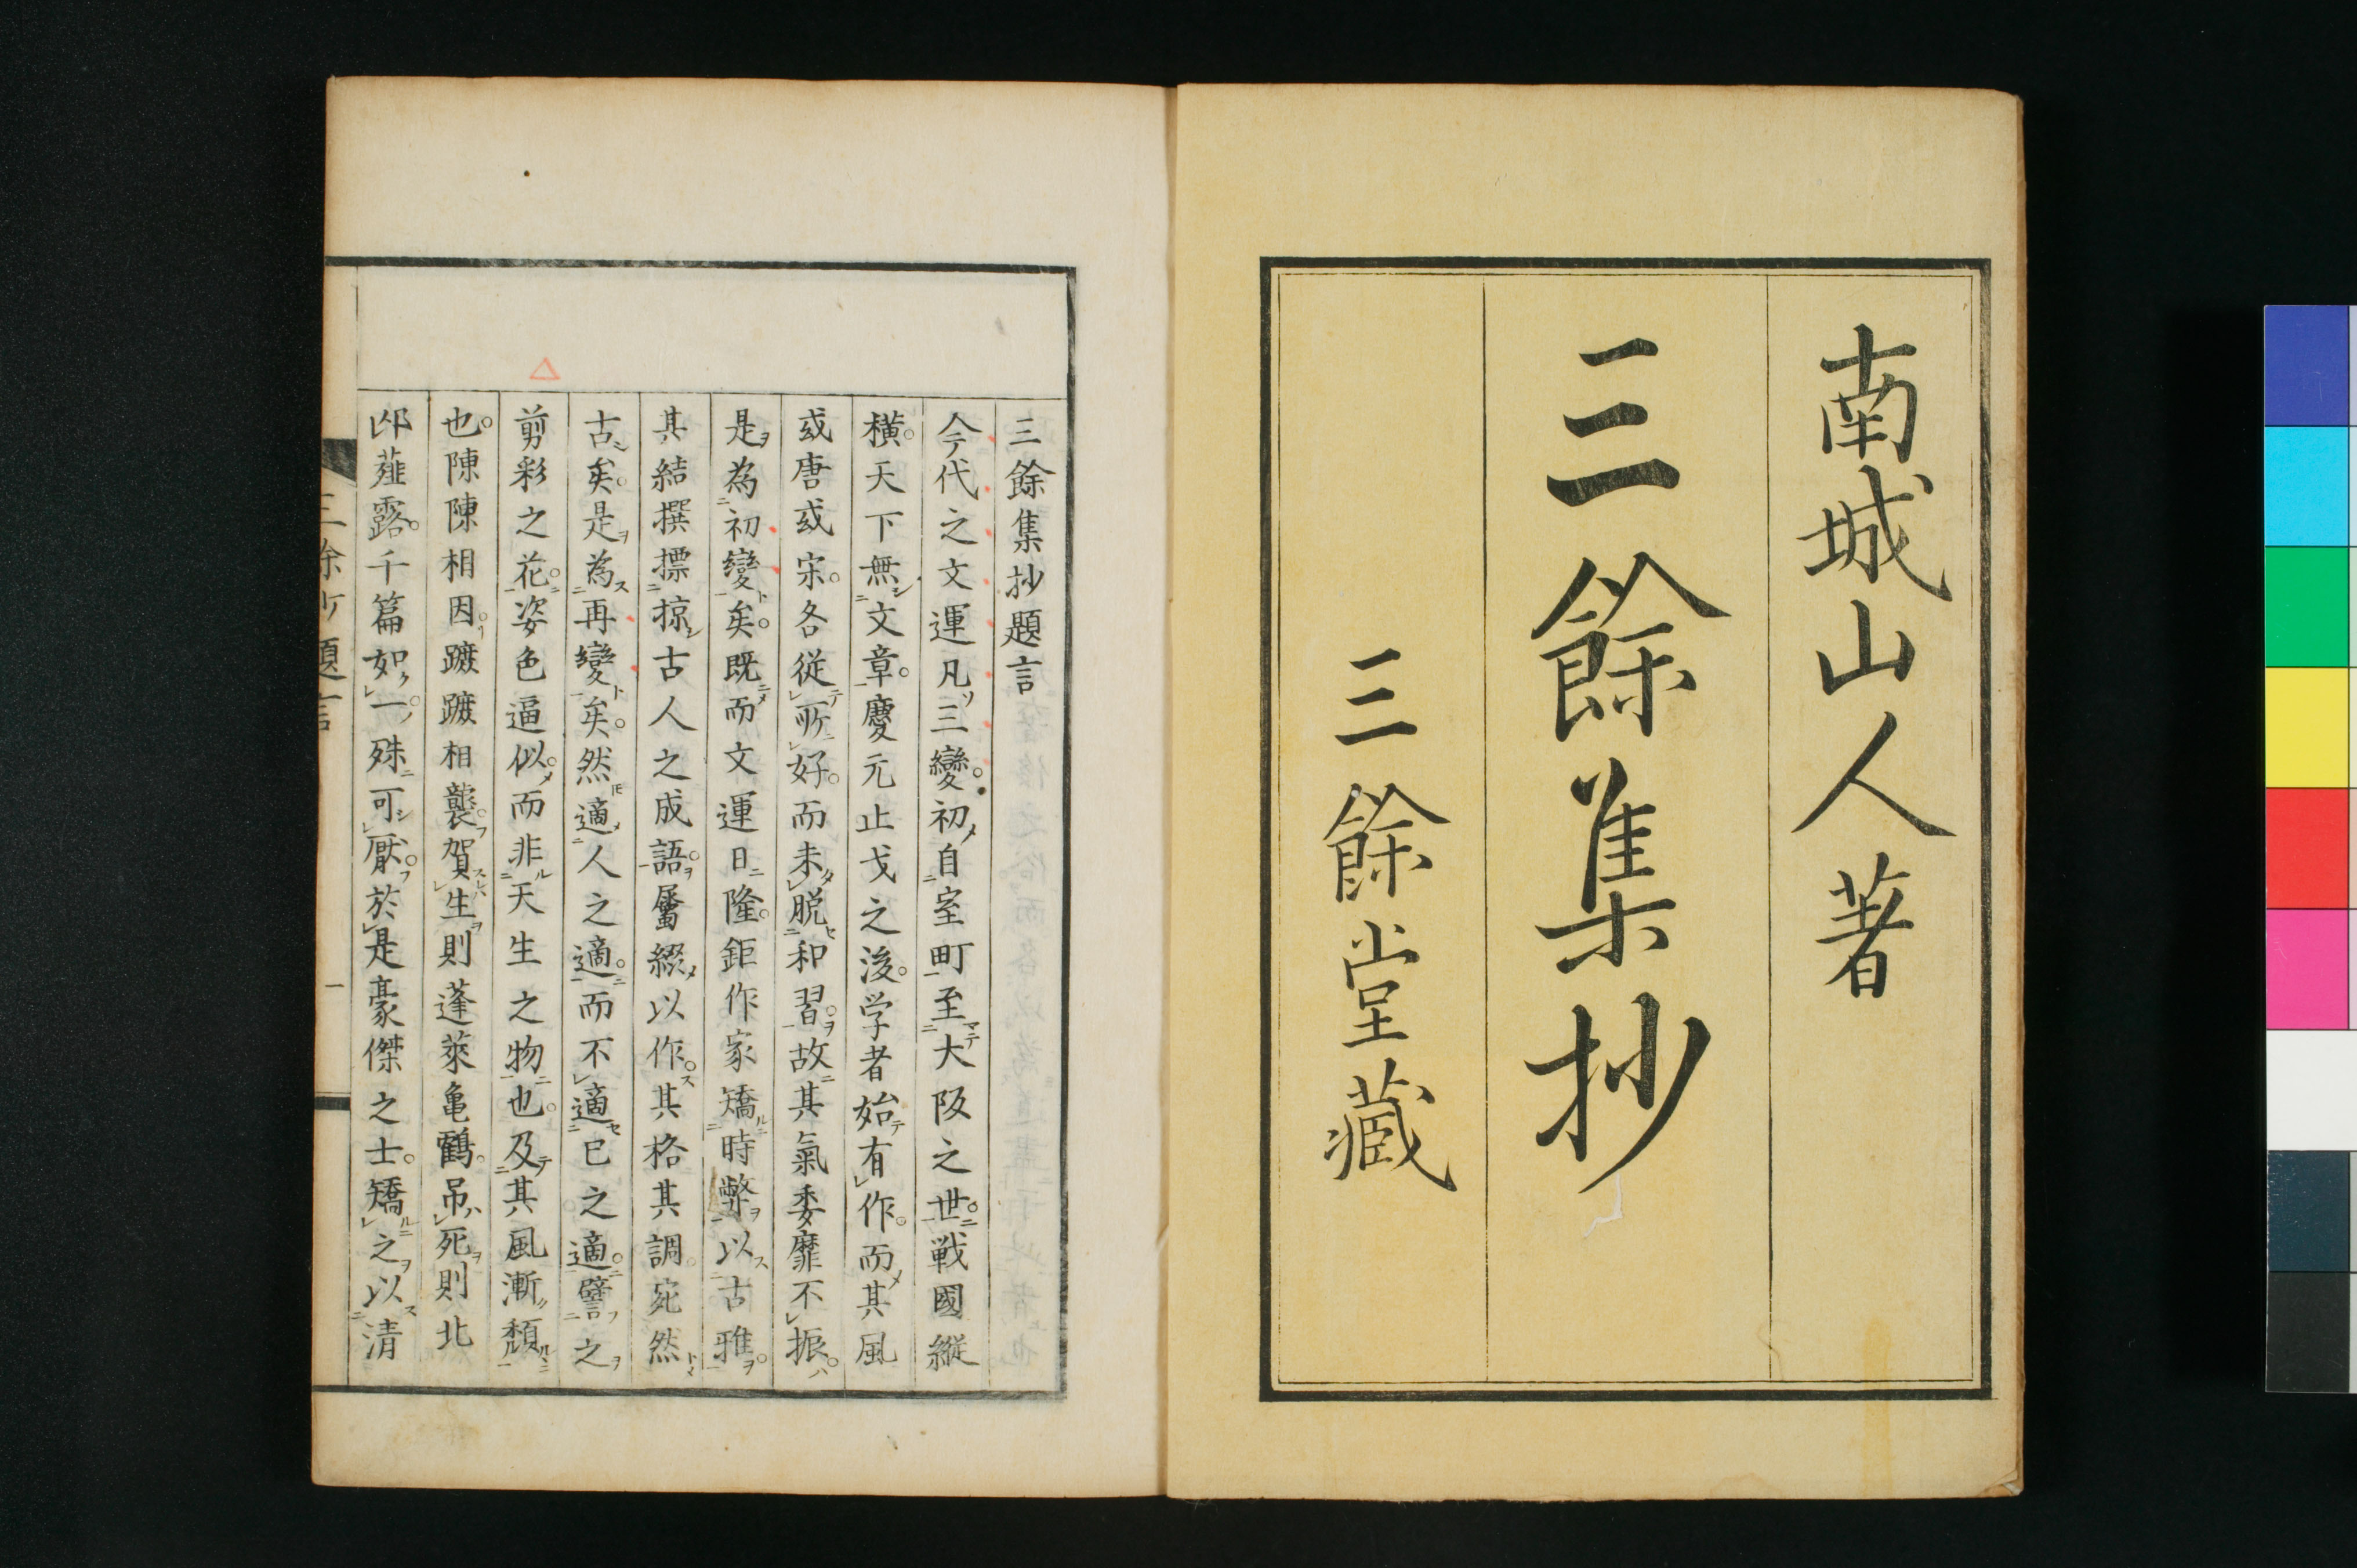 南城山人著
三餘集抄
三餘堂藏
三餘集抄題言
今代之文運凡三變初自室町至大阪之世戰國縱
橫天下無文章慶元止戈之後学者始有作而其風
或唐或宋各從所好而未脱和習故其氣委靡不振
是為初變矣既而文運日隆鉅作家矯時弊以古雅
其結撰摽掠古人之成語屬綴以作其格其調宛然
古矣是為再變矣然適人之適而不適已之適譬之
剪彩之花姿色逼似而非天生之物也及其風漸頽
也陳陳相因蹤蹤相襲賀生則蓬萊亀鶴吊死則北
邙薤露千篇如一殊可厭於是豪傑之士矯之以清
三餘抄題言 一